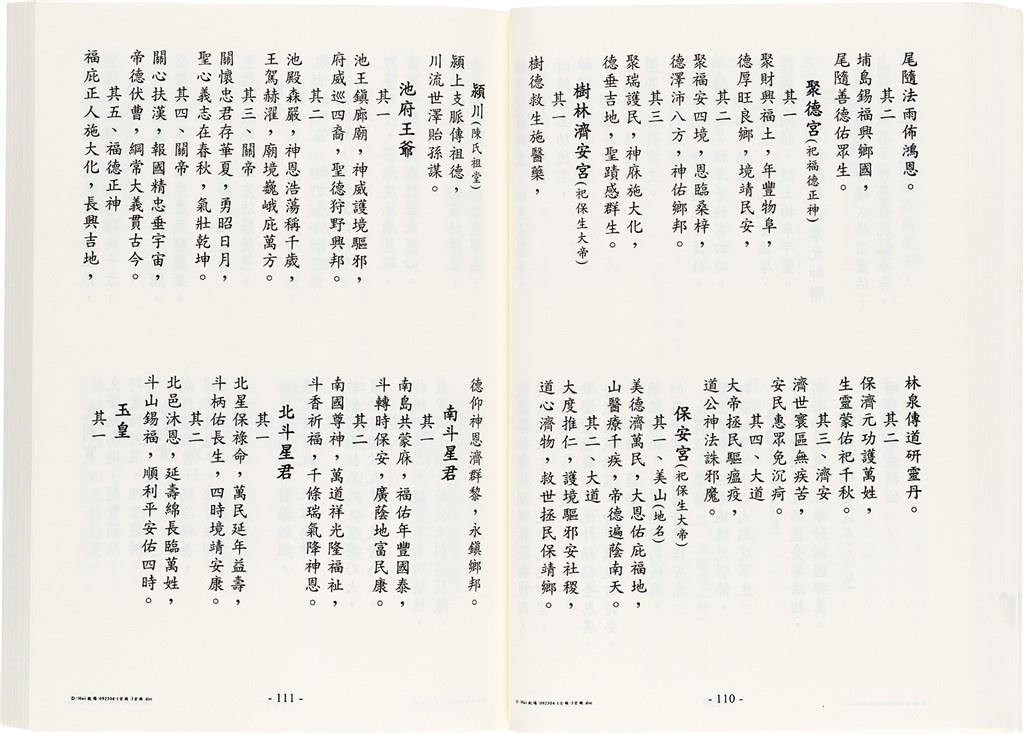 尾隨法雨佈鴻恩。
其二
埔島錫福興鄉國，
尾隨善德佑眾生。
聚德宮(祀福德正神)
其一
聚財興福土，年豐物阜，
德厚旺良鄉，境靖民安，
其二
聚福安四境，恩臨桑梓，
德澤沛八方，神佑鄉邦。
其三
聚瑞護民，神庥施大化，
德垂吉地，聖蹟感群生。
樹林濟安宮(祀保生大帝)
其一
樹德救生施醫藥，
林泉傳道研靈丹。
其二
保濟元功護萬姓，
生靈蒙佑祀千秋。
其三、濟安
濟世寰區無疾苦，
安民惠眾免沉疴。
其四、大道
大帝拯民驅瘟疫，
道公神法誅邪魔。
保安宮(祀保生大帝)
其一、美山(地名)
美德濟萬民，大恩佑庇福地，
山醫療千疾，帝德遍蔭南天。
其二、大道
大度推仁，護境驅邪安社稷，
道心濟物，救世拯民保靖鄉。
- 110 -
潁川(陳氏祖堂)
潁上支脈傳祖德，
川流世澤貽孫謀。
池府王爺
其一
池王鎮廊廟，神威護境驅邪，
府威巡四裔，聖德狩野興邦。
其二
池殿森嚴，神恩浩蕩稱千歲，
王駕赫濯，廟境巍峨庇萬方。
其三、關帝
關懷忠君存華夏，勇昭日月，
聖心義志在春秋，氣壯乾坤。
其四、關帝
關心扶漢，報國精忠垂宇宙，
帝德伏曹，綱常大義貫古今。
其五、福德正神
福庇正人施大化，長興吉地，
德仰神恩濟群黎，永鎮鄉邦。
南斗星君
其一
南島共蒙庥，福佑年豐國泰，
斗轉時保安，廣蔭地富民康。
其二
南國尊神，萬道祥光隆福祉，
斗香祈福，千條瑞氣降神恩。
北斗星君
其一
北星保祿命，萬民延年益壽，
斗柄佑長生，四時境靖安康。
其二
北邑沐恩，延壽綿長臨萬姓，
斗山錫福，順利平安佑四時。
玉皇
其一
- 111 -